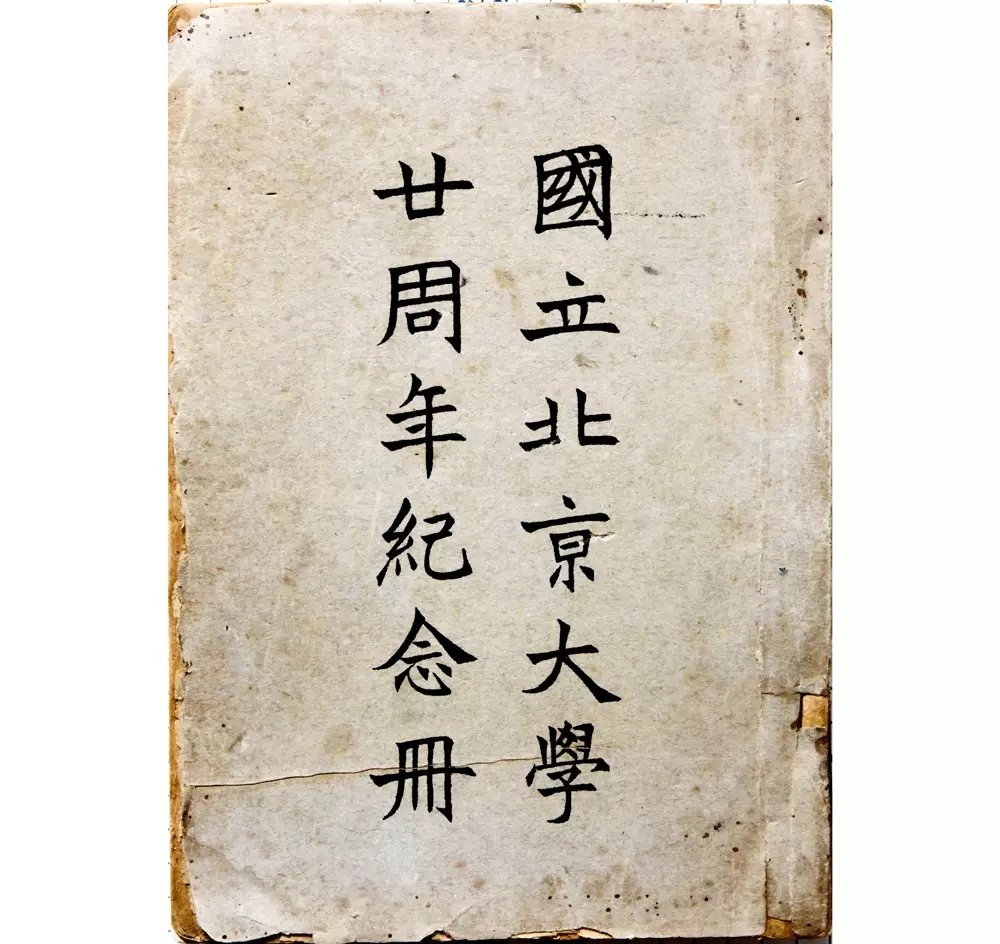 國立北京大學
廿周年紀念冊